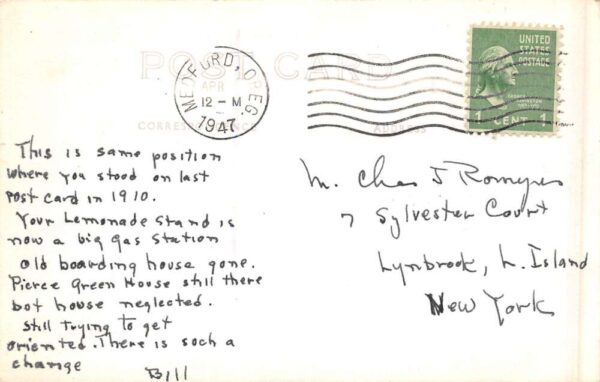 POST CARD
MEDFORD, OREG.
APR
12-M
1947
UNITED
STATES
POSTAGE
GEORGE
WASHINGTON
1 CENT 1
CORRESPONDENCE
ADDRESS
This is same position
where you stood on last
post card in 1910.
Your Lemonade stand is
now a big gas station
old boarding house gone.
Pierce Green House still there
bot house neglected.
still trying to get
oriented. There is such a
change
Bill
M. Chas J
7 Sylvester Court
Lynbrook, L. Island
New York